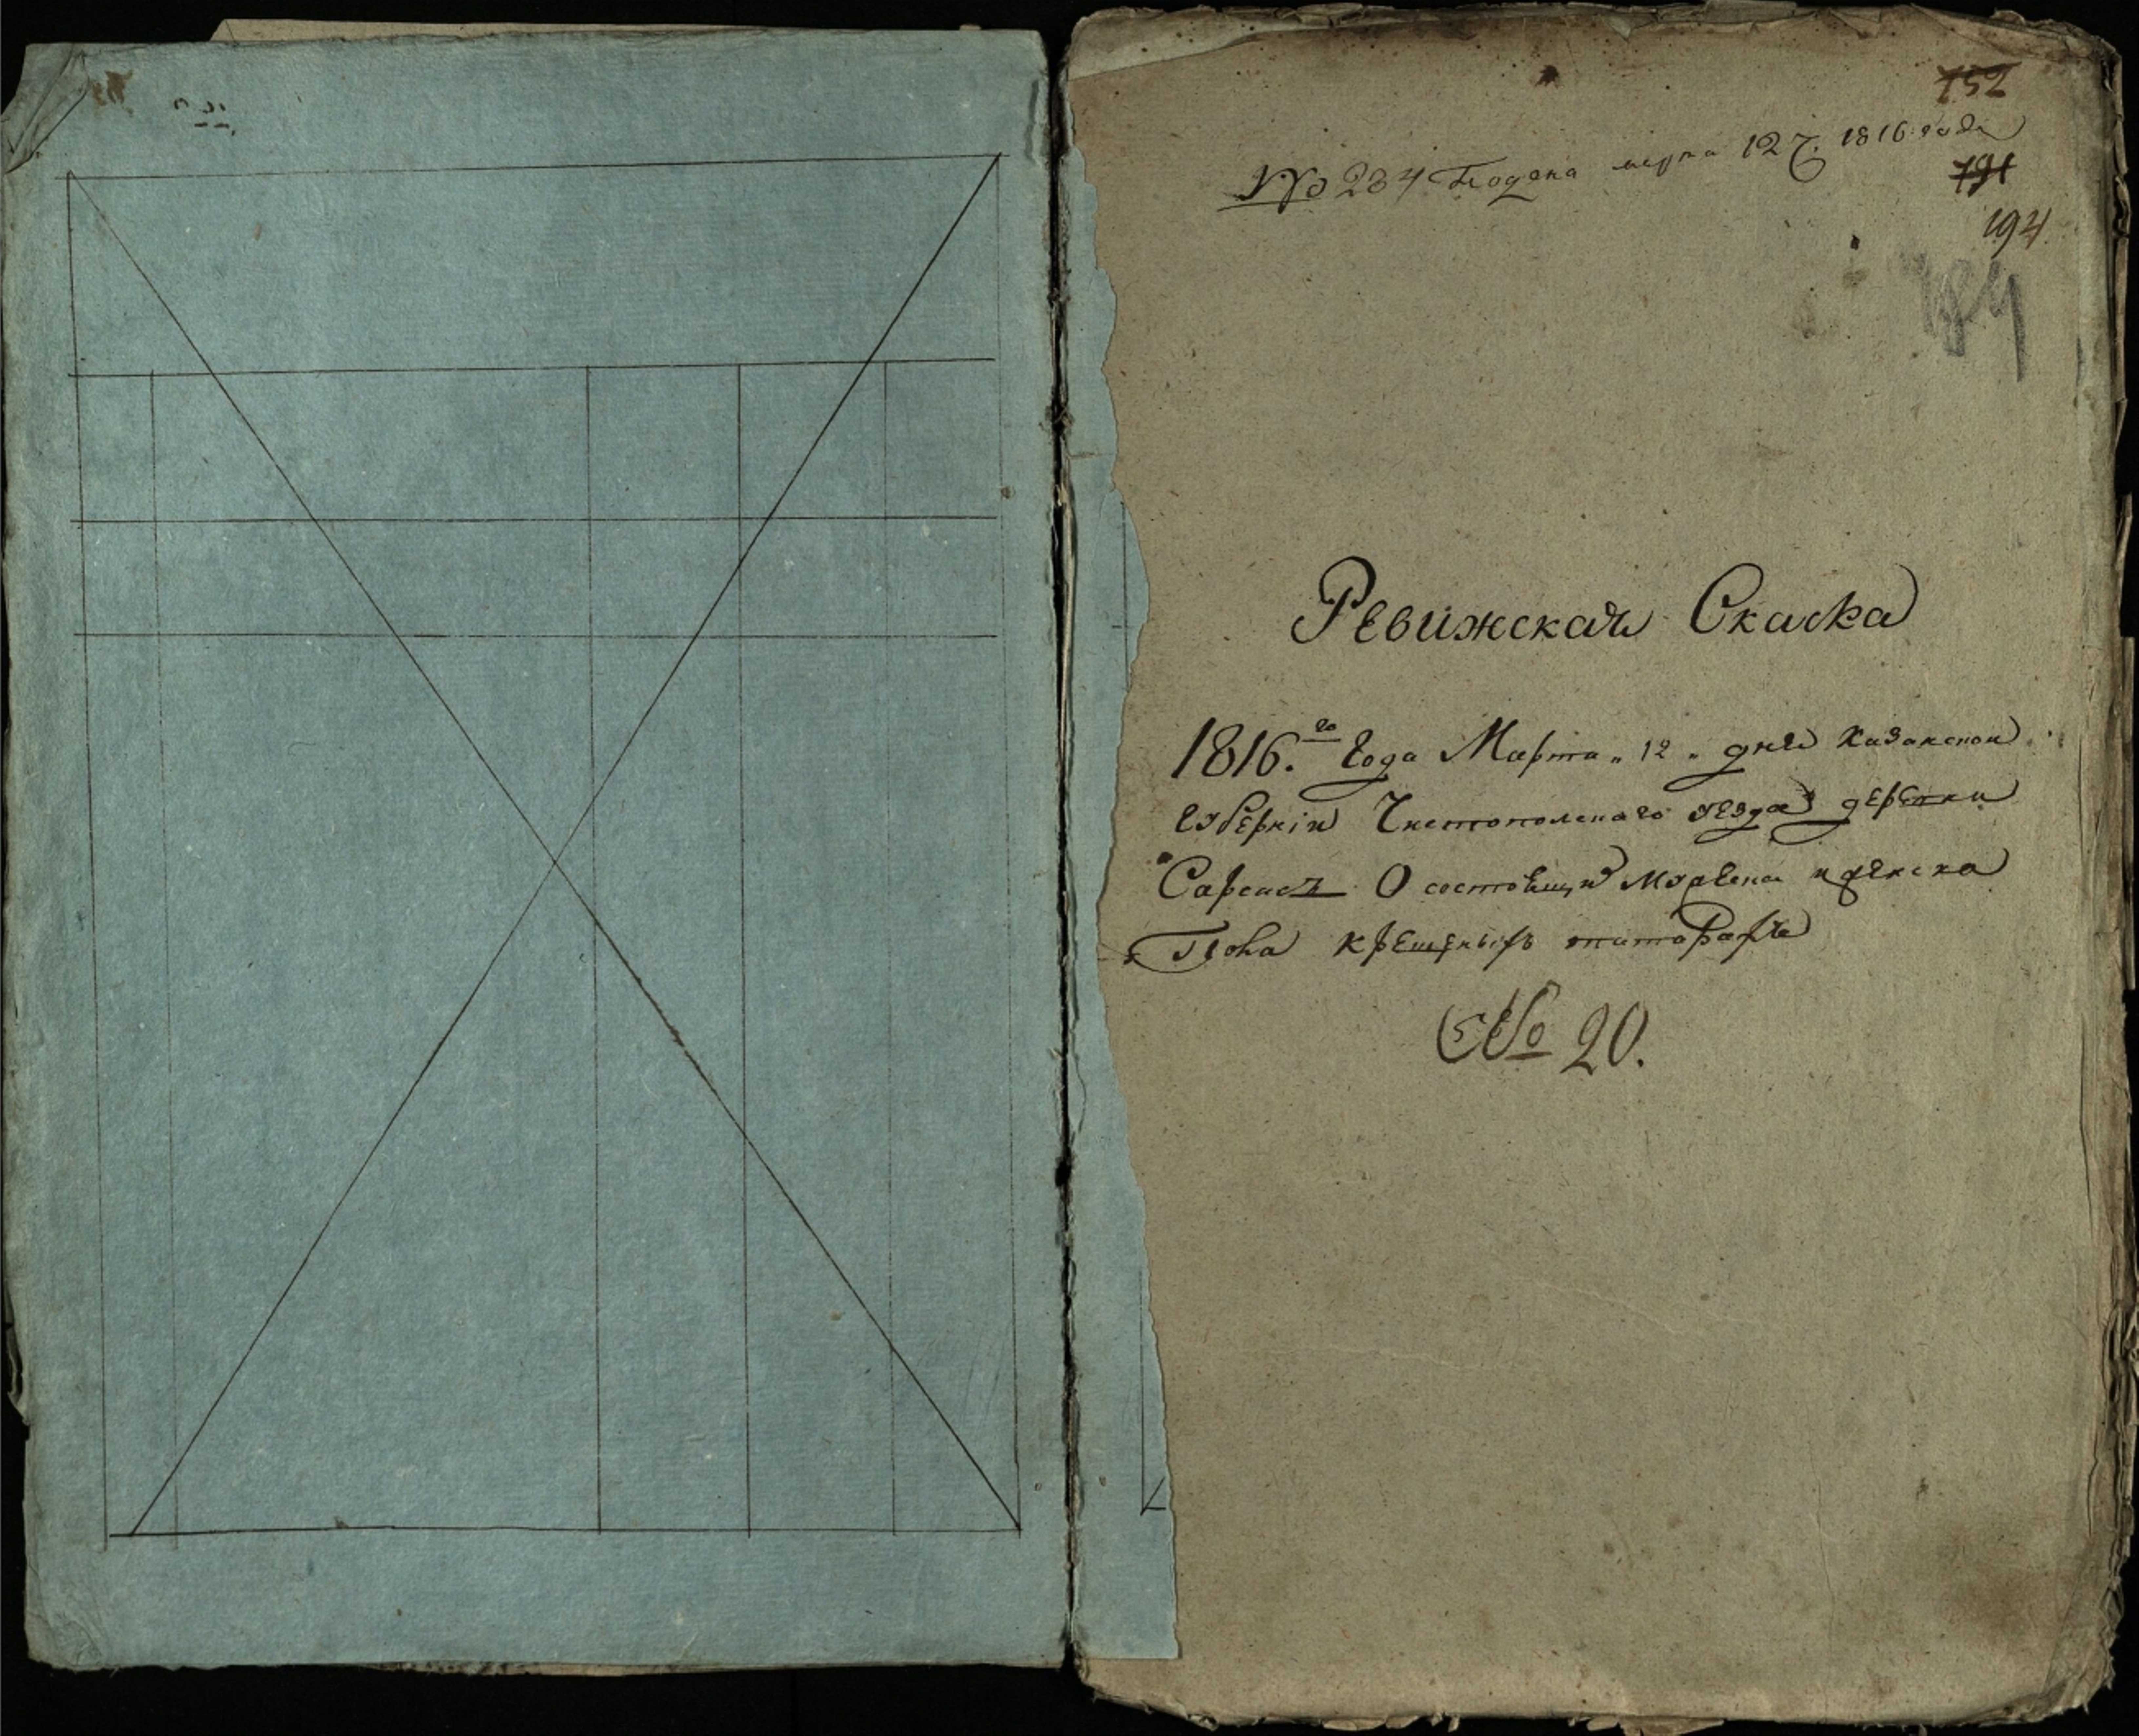 752
№ 234 Подана марта 12 ч. 1816 года
191
194
184
Ревижская Скаска
1816.го Года Марта „ 12 „ дня Казанской
губернiи Чистопольскаго уезда деревни
Сарсасъ О состоящих мужеска и женска
Пола крещеныхъ татарахъ
№ 20.